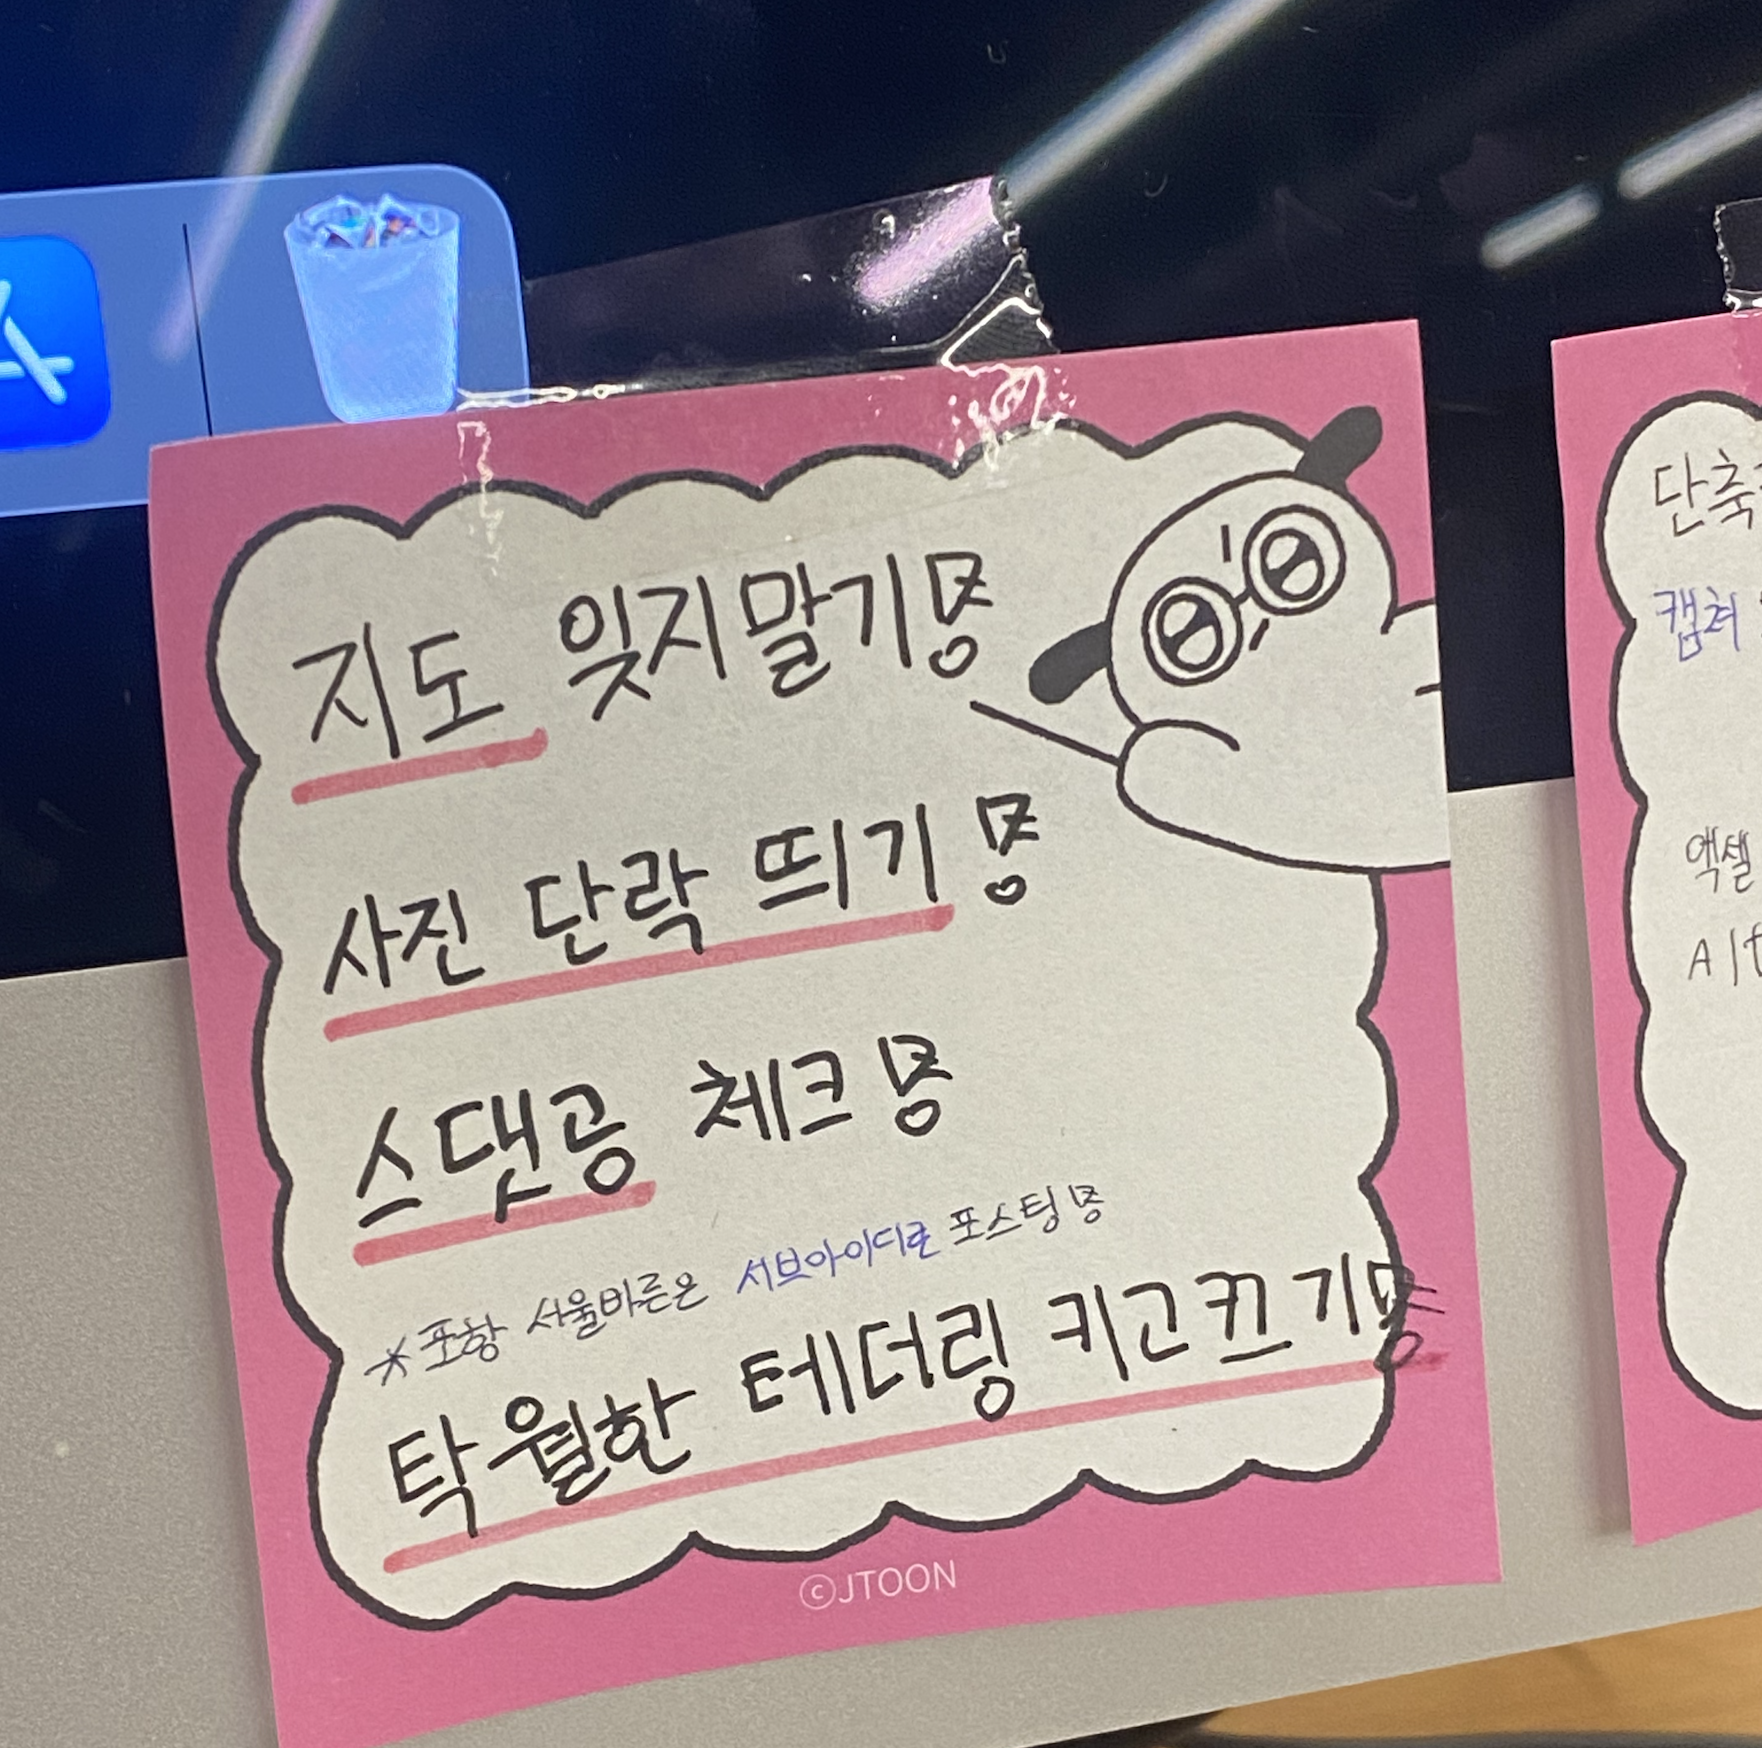 지도 잊지말기명
사진 단락 띄기 명
스댓공 체크 명
*포항 서울바른은 서브아이디로 포스팅 명
탁월한 테더링 키고끄기명
ⓒJTOON
캡쳐
엑셀